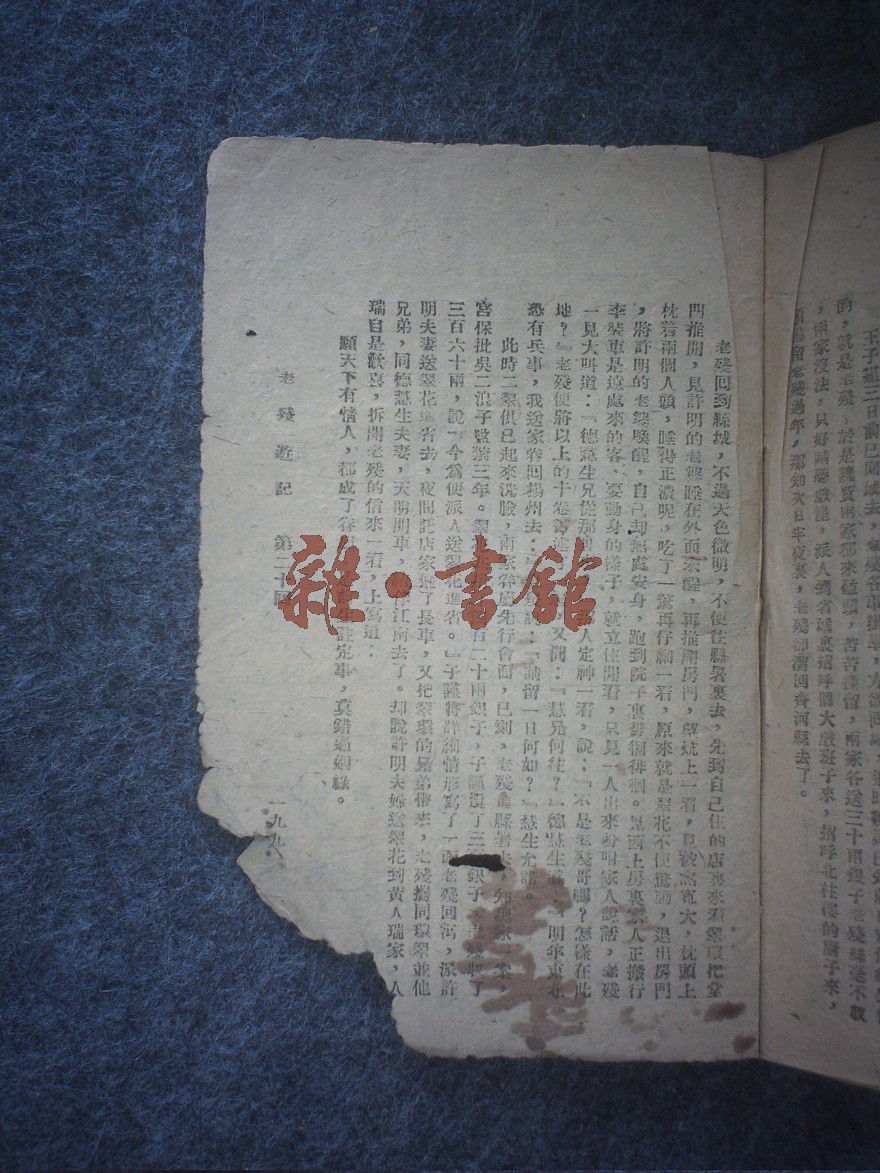 王子謹三日前已回城去，
的，就是老殘，於是魏賈兩家都來磕頭，苦苦挽留，兩家各送三千兩銀子老殘絲毫不收
，兩家沒法，只好請聽戲罷，派人到省城裏招呼個大戲班子來，招呼北柱樓的廚子來，
預備留老殘過年，那知次日半夜裏，老殘却溜回齊河縣去了。
老殘回到縣城，不過天色微明，不便往縣署裏去，先到自己住的店裏來看翠環把堂
門推開，見許明的老婆睡在外面未醒，再推開房門，望炕上一看，見被窩寬大，枕頭上
枕着兩個人頭，睡得正濃呢，吃了一驚再仔細一看，原來就是翠花不便驚動，退出房門
，將許明的老婆喚醒，自己却無處安身，跑到院子裏徘徊徘徊。見西上房裏家人正搬行
李裝車是遠處來的客，要動身的樣子，就立住閒看，只見一人出來吩咐家人說話，老殘
一見大叫道：『德慧生兄從那裏來人定神一看，說：『不是老殘哥嗎？怎樣在此
地？』老殘便將以上的十卷書述又問：『慧兄何往？』德慧生道：『明年東北
恐有兵事，我送家眷回揚州去：『請留一日何如？』慧生允諾。
此時二翠俱已起來洗臉，兩家眷屬先行會面，已刻，老殘進縣署去，知魏家一案，
宮保批吳二浪子監禁三年。翠二十兩銀子，子謹還了三百銀子，老殘收了
三百六十兩，說『今爲便派人送翠花進省。』子謹將詳細情形寫了一函老殘回寓，派許
明夫妻送翠花進省去，夜間託店家僱了長車，又把翠環的兄弟帶來，老殘攜同環翠並他
兄弟，同德慧生夫妻，天明開車，江南去了。却說許明夫婦送翠花到黃人瑞家，人
瑞自是歡喜，拆開老殘的信來一看，上寫道：
願天下有情人，都成了眷生註定事，莫錯過姻緣。
老殘遊記　第二十回
一九九
雜·書館